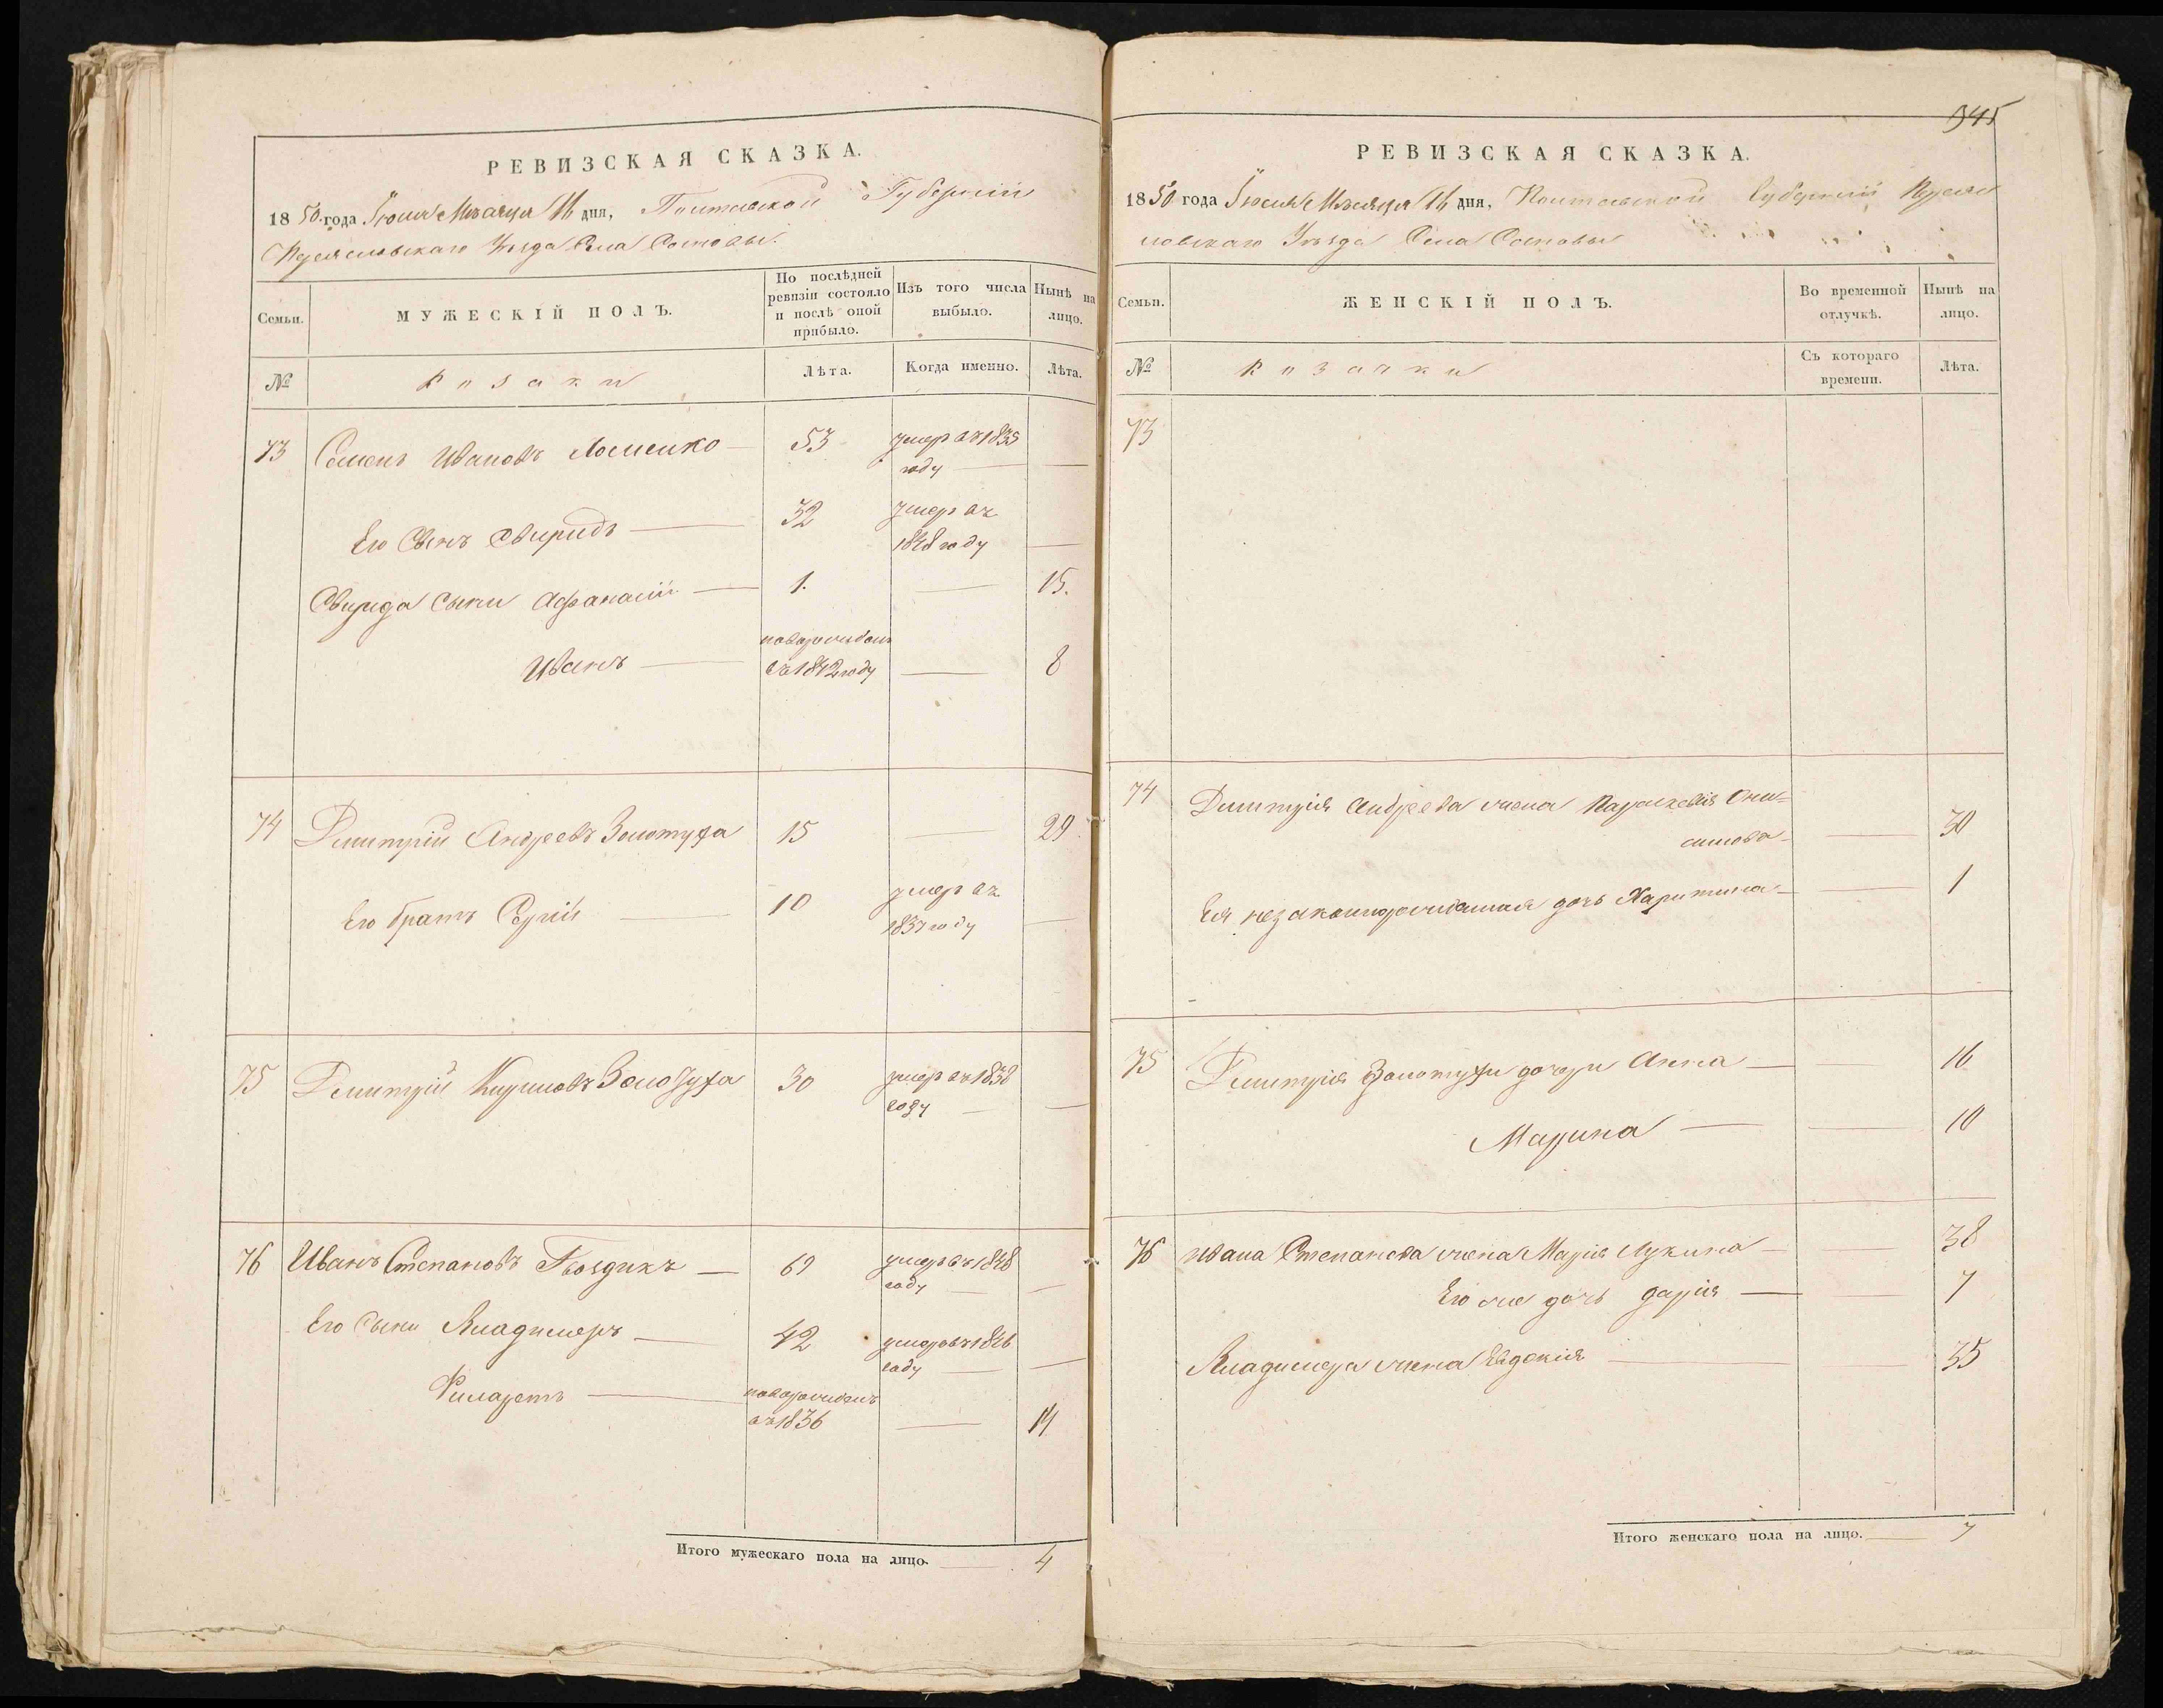 РЕВИЗСКАЯ СКАЗКА.
1850 года Іюня Мѣсяца 16 дня, Полтавской Губерніи
Переяславскаго Уѣзда Села Сосновы.
Семьи.
МУЖЕСКІЙ ПОЛЪ.
По послѣдней ревизіи состояло и послѣ оной прибыло.
Изъ того числа выбыло.
Нынѣ на лицо.
№
Козаки
Лѣта.
Когда именно.
Лѣта.
73 Семенъ Ивановъ Лосленко 53 умеръ въ 1835
году
Его Сынъ Свиридъ 32 умеръ въ
1848 году
Свирида Сыны Афанасій 1. 15.
новорожденъ
Иванъ въ 1842 году 8
74 Дмитрій Андреевъ Золотуха 15 29
Его братъ Сергій 10 умеръ въ
1837 году
75 Дмитрій Кириловъ Золотуха 30 умеръ въ 1838
году
76 Иванъ Степановъ Гвоздикъ 69 умеръ въ 1848
году
Его Сыны Владимеръ 42 умеръ въ 1846
году
Филаретъ новорожденъ
въ 1836 14
Итого мужескаго пола на лицо. 4
945
РЕВИЗСКАЯ СКАЗКА.
1850 года Іюня Мѣсяца 16 дня, Полтавской Губерніи Переяс
лавскаго Уѣзда Села Сосновы
Семьи.
ЖЕНСКІЙ ПОЛЪ.
Во временной отлучкѣ.
Нынѣ на лицо.
№
Козачки
Съ котораго времени.
Лѣта.
73
74 Дмитрія Андреева жена Параскевія Они=
симова 30
Ея незаконнорожденная дочь Харитина 1
75 Дмитрія Золотухи дочери Анна 16
Марина 10
76 Ивана Степанова жена Марія Лукина 38
Его же дочь Дарія 7
Владимера жена Евдокія 35
Итого женскаго пола на лицо. 7